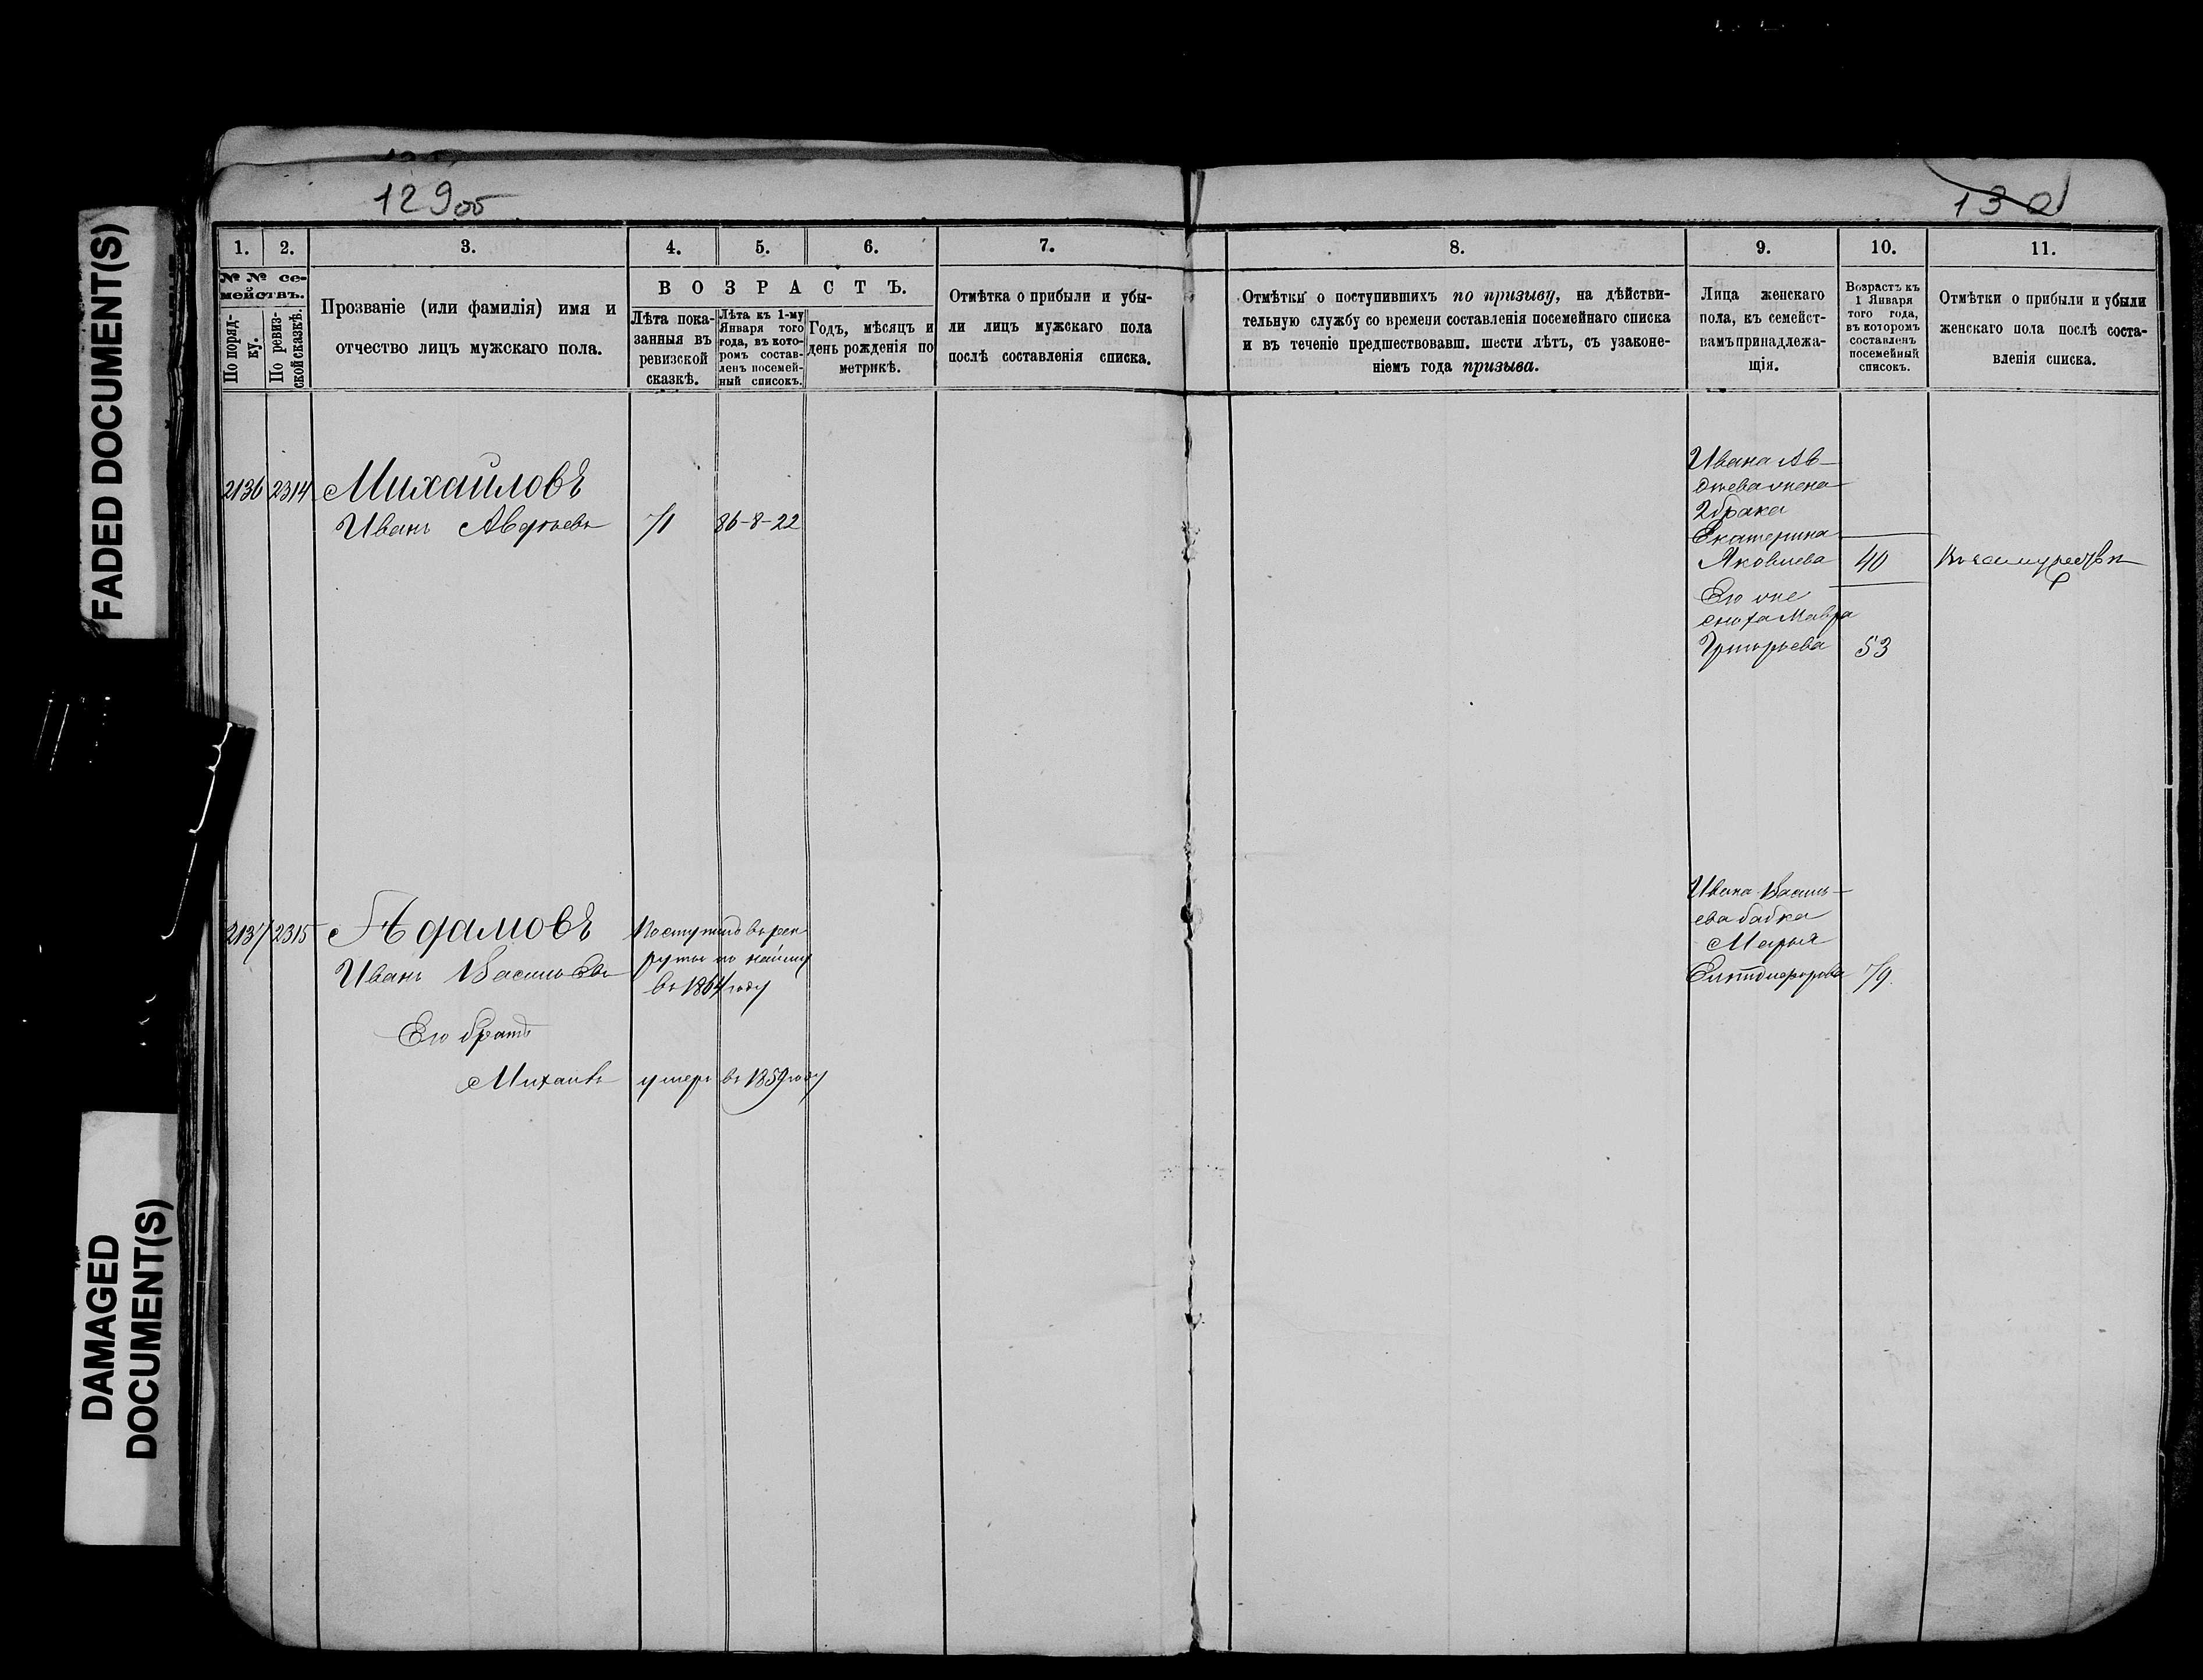 FADED DOCUMENT(S)
DAMAGED
DOCUMENT(S)
129об
130
1.
2.
3.
4.
5.
6.
7.
8.
9.
10.
11.
№ № се-
мействъ.
По поряд-
ку.
По ревиз-
ской сказкѣ.
Прозваніе (или фамилія) имя и
отчество лицъ мужскаго пола.
ВОЗРАСТЪ.
Лѣта пока-
занныя въ
ревизской
сказкѣ.
Лѣта къ 1-му
Января того
года, въ кото-
ромъ состав-
ленъ посемей-
ный списокъ.
Годъ, мѣсяцъ и
день рожденія по
метрикѣ.
Отмѣтка о прибыли и убы-
ли лицъ мужскаго пола
послѣ составленія списка.
Отмѣтки о поступившихъ по призыву, на дѣйстви-
тельную службу со времени составленія посемейнаго списка
и въ теченіе предшествовавш. шести лѣтъ, съ узаконе-
ніемъ года призыва.
Лица женскаго
пола, къ семейст-
вамъ принадлежа-
щія.
Возрастъ къ
1 Января
того года,
въ которомъ
составленъ
посемейный
списокъ.
Отмѣтки о прибыли и убыли
женскаго пола послѣ соста-
вленія списка.
2136 2314 Михайловъ
Иванъ Авдѣевъ 71 86-8-22
Ивана Ав-
дѣева жена
2 брака
Екатерина
Яковлева 40
Его же
сноха Мавра
Григорьева 53
2137 2315 Адамовъ
Иванъ Васильевъ
Поступилъ въ рек
руты по найму
въ 1864 году
Его братъ
Михаилъ умеръ въ 1859 году
Ивана Василь-
ева бабка
Марья
79.